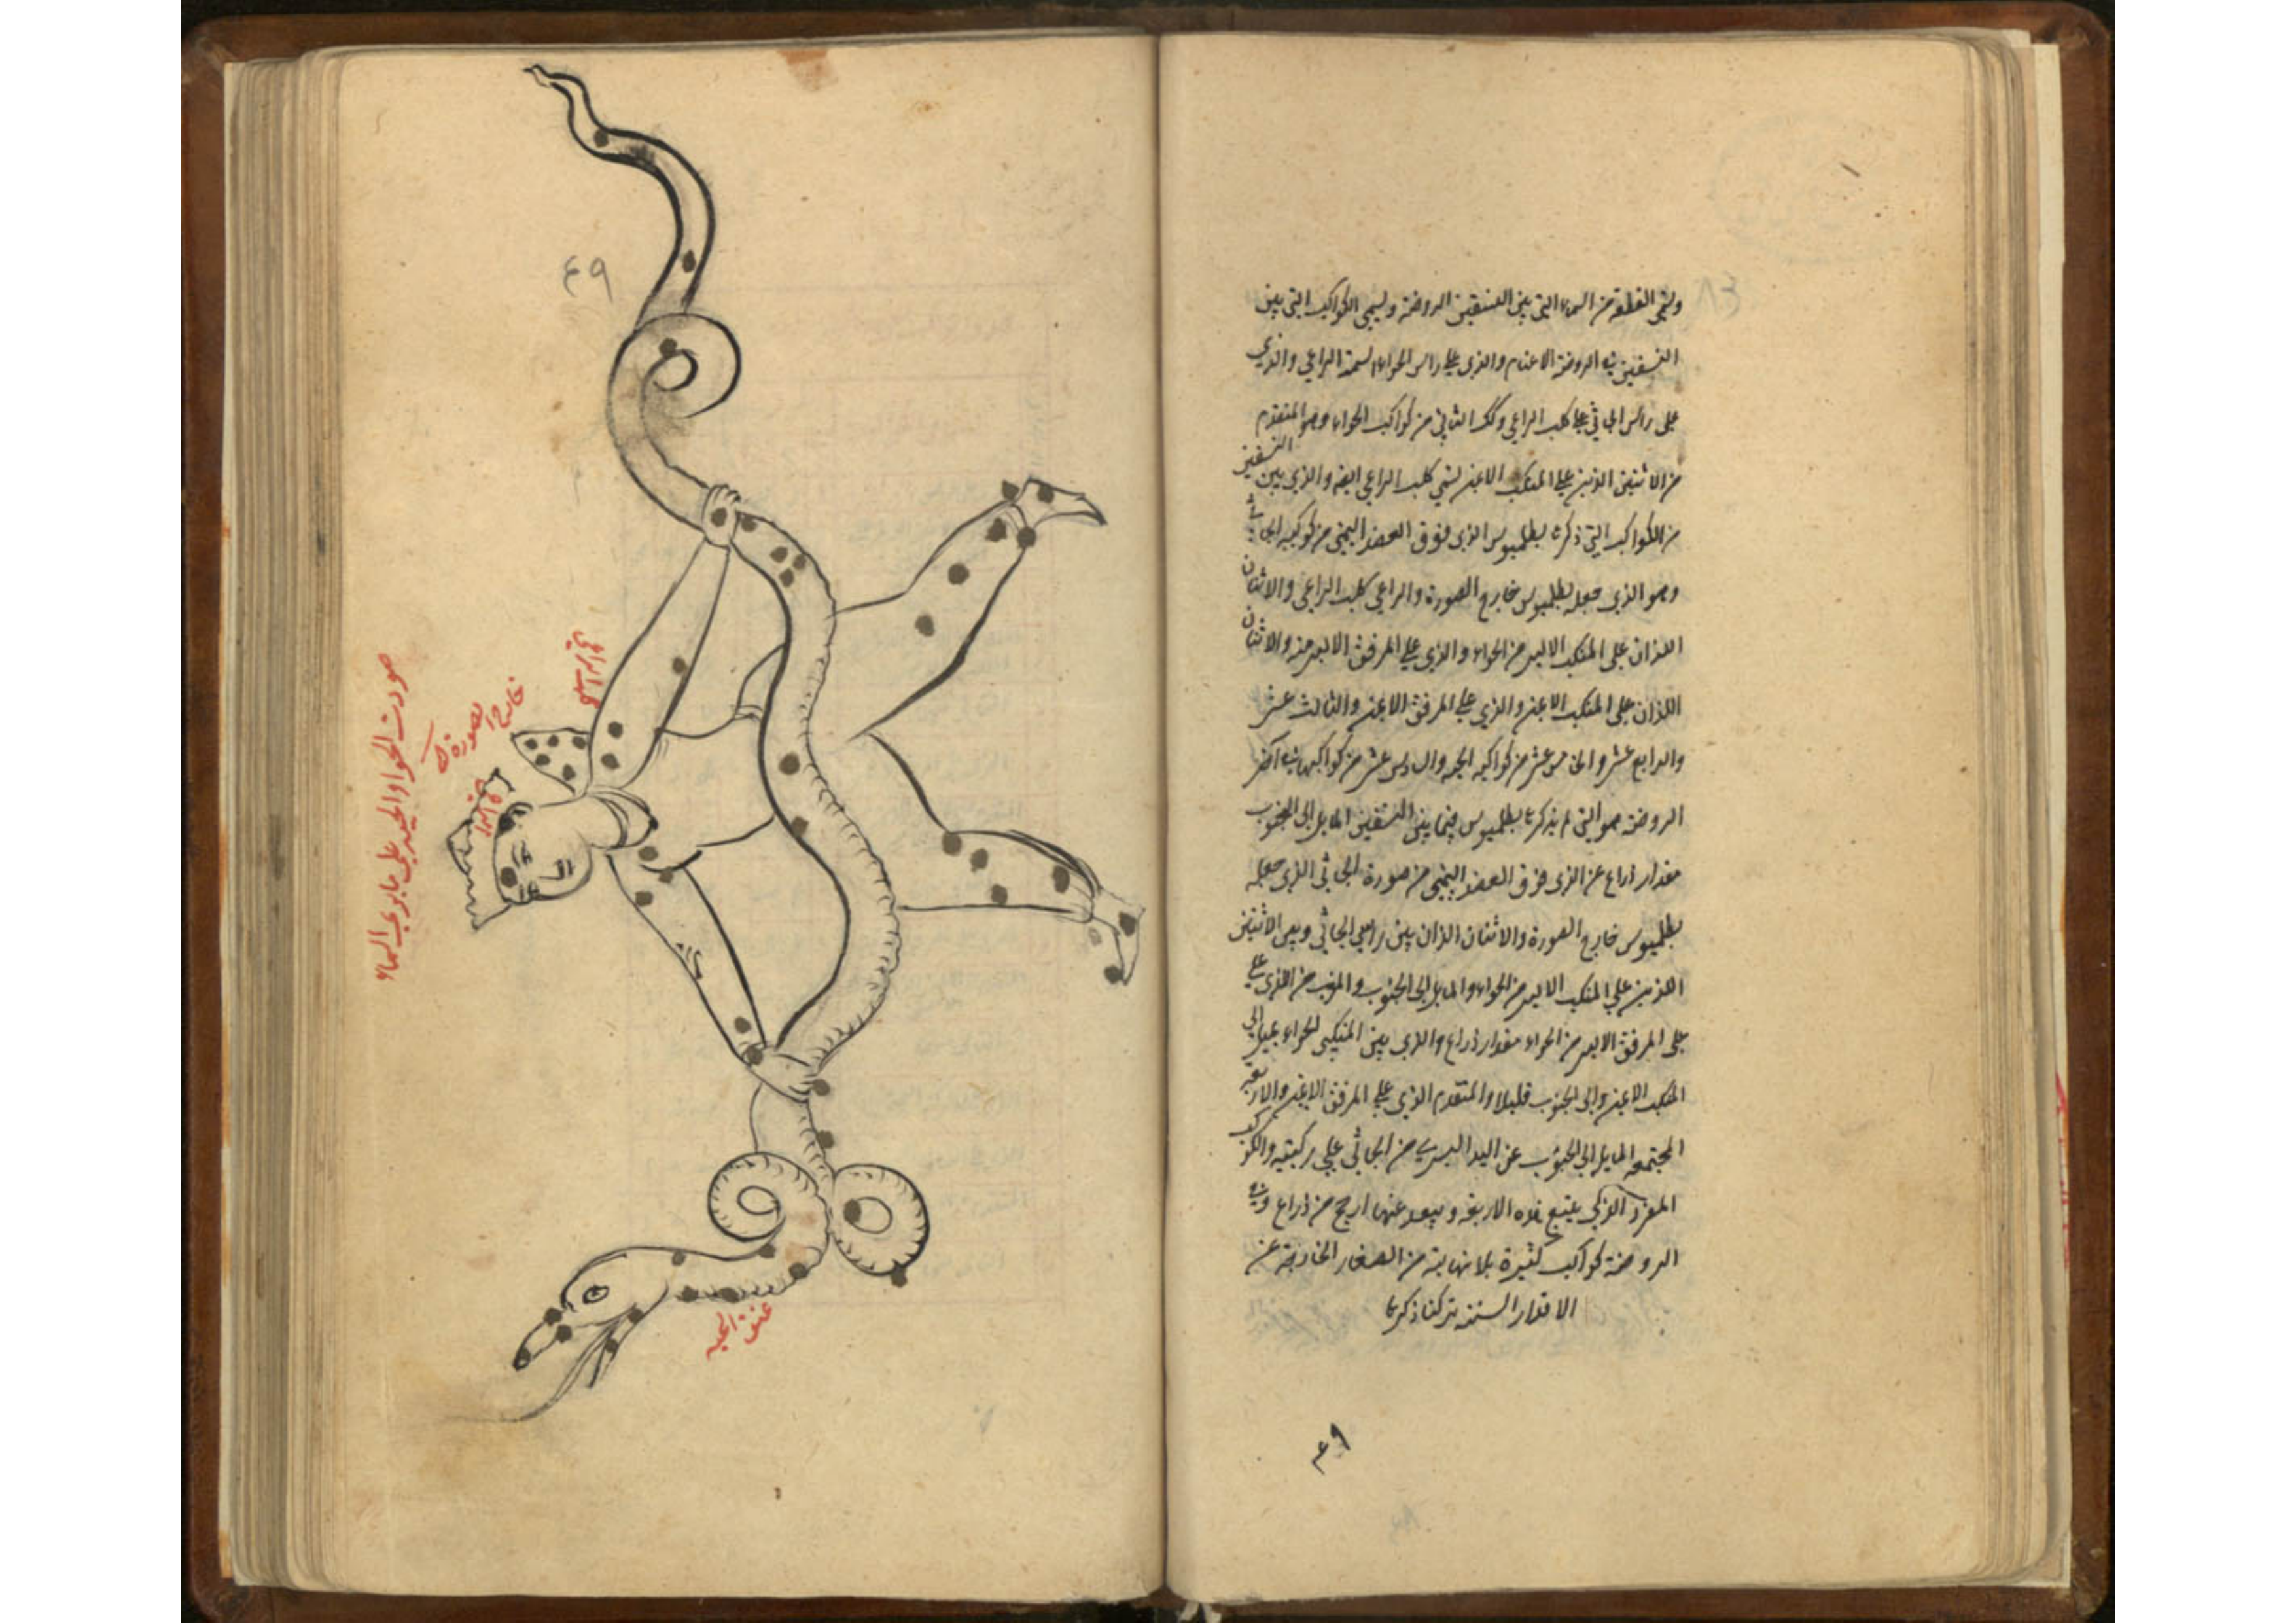 وتسمى القطعة من السماء التي بين النسقين الروضة ويسمى الكواكب التي بين
النسقين في الروضة الاغنام والذي على راس الحواء يسمى الراعي والذي
على راس الجاثي على كلب الراعي وكك الثاني من كواكب الحواء وهو المتقدم
من الاثنين الذين على المنكب الايمن يسمى كلب الراعي ايضا والذي بين النسقين
من الكواكب التي ذكرها بطلميوس الذي فوق العضد اليمنى من كوكبه الجاثي
وهو الذي جعله بطلميوس خارج الصورة والراعي كلب الراعي والاثنان
اللذان على المنكب الايسر من الحواء والذي على المرفق الايسر منه والاثنان
اللذان على المنكب الايمن والذي على المرفق الايمن والثالث عشر
والرابع عشر والخامس عشر من كواكبه الحيه والسادس عشر من كواكبها في آخر
الروضة هو التي لم يذكرها بطلميوس فيما بين النسقين المايل الى الجنوب
مقدار ذراع عن الذي فوق العضد اليمنى من صورة الجاثي الذي جعله
بطلميوس خارج الصورة والاثنان الذان بين راسي الجاثي وبين الاثنين
الذين على المنكب الايسر من الحواء والمايل الى الجنوب و من الذي على
على المرفق الايسر من الحواء مقدار ذراع والذي بين المنكبي لحواء يميل الى
المنكب الايمن والى الجنوب قليلا والمتقدم الذي على المرفق الايمن والاربعة
المجتمعه المايل الى الجنوب عن اليد اليسرى من الجاثي على ركبتيه والكوكب
المفرد الذي يتبع هذه الاربعة ويبعد عنها ارجح من ذراع وفي
الروضة كواكب كثيرة بلا نهاية من الصغار الخارجة عن
الاقدار الستة تركنا ذكرها
٤٩
٤٩
صورت الحوا والحيه على ما يرى في السماء
خارج الصورة
عنق الحيه